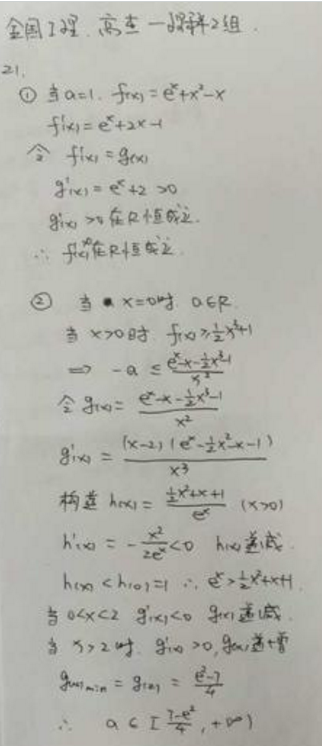 全国I理.高考一课群2组.
21.
① 当a=1. f(x)=eˣ+x²-x
f'(x)=eˣ+2x-1
令 f'(x)=g(x)
g'(x)=eˣ+2>0
g'(x)>0在R恒成立.
∴ f(x)在R恒成立.
② 当 x=0时. a∈R.
当 x>0时 f(x)≥½x³+1
⇒ -a ≤ (eˣ-x-½x³-1)/x²
令 g(x)= (eˣ-x-½x³-1)/x²
g'(x)= (x-2)(eˣ-½x²-x-1)/x³
构造 h(x)= (½x²+x+1)/eˣ (x>0)
h'(x)= -x²/2eˣ<0 h(x)递减.
h(x)<h(0)=1 ∴ eˣ>½x²+x+1.
当 0<x<2 g'(x)<0 g(x)递减.
当 x>2时. g'(x)>0, g(x)递增
g(x)min=g(2)= (e²-7)/4
∴ a∈[(7-e²)/4, +∞)